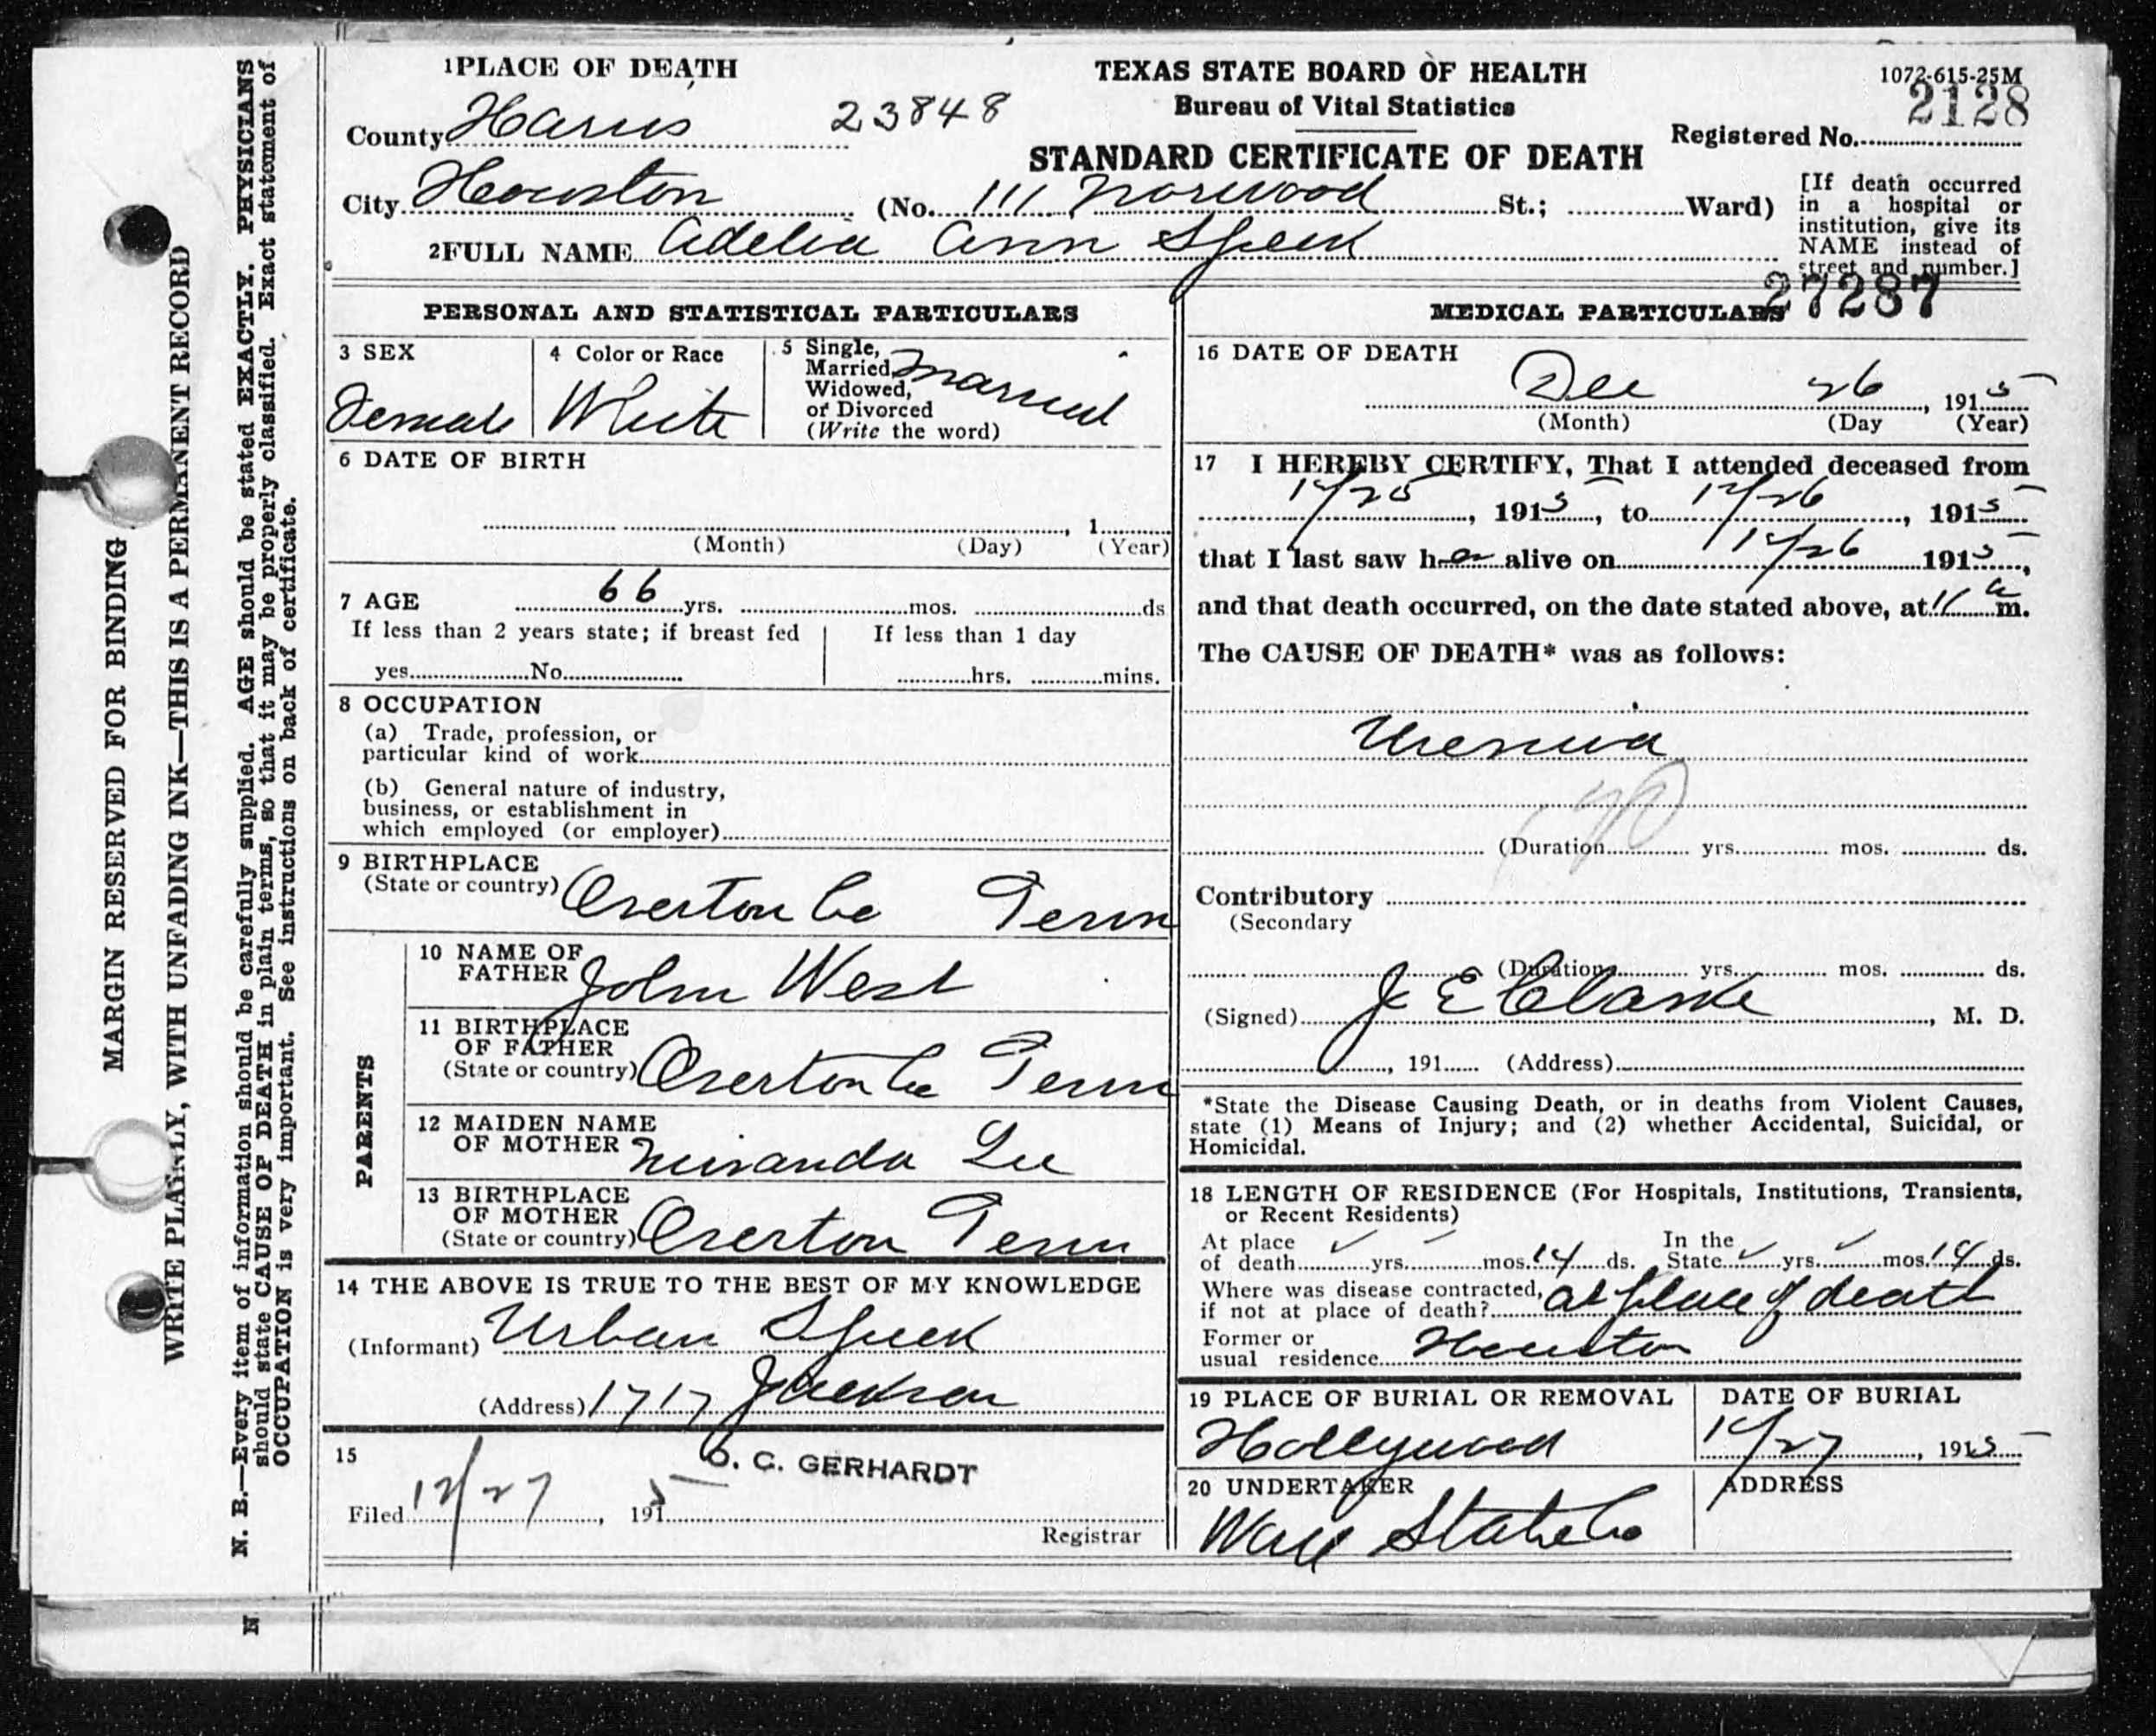 1PLACE OF DEATH
TEXAS STATE BOARD OF HEALTH
Bureau of Vital Statistics
STANDARD CERTIFICATE OF DEATH
1072-615-25M
Registered No. 2128
County Harris 23848
City Houston (No. 111 Norwood St.; Ward)
[If death occurred
in a hospital or
institution, give its
NAME instead of
street and number.]
2FULL NAME Adelia Ann Speck
27287
PERSONAL AND STATISTICAL PARTICULARS
3 SEX
Female
4 Color or Race
White
5 Single,
Married,
Widowed,
or Divorced
(Write the word)
Married
6 DATE OF BIRTH
, 1
(Month) (Day) (Year)
7 AGE 66 yrs. mos. ds
If less than 2 years state; if breast fed
yes No
If less than 1 day
hrs. mins.
8 OCCUPATION
(a) Trade, profession, or
particular kind of work
(b) General nature of industry,
business, or establishment in
which employed (or employer)
9 BIRTHPLACE
(State or country) Overton Co Tenn
PARENTS
10 NAME OF
FATHER John West
11 BIRTHPLACE
OF FATHER
(State or country) Overton Co Tenn
12 MAIDEN NAME
OF MOTHER Miranda Lee
13 BIRTHPLACE
OF MOTHER
(State or country) Overton Tenn
14 THE ABOVE IS TRUE TO THE BEST OF MY KNOWLEDGE
(Informant) Urban Speck
(Address) 1717 Jackson
15
O. C. GERHARDT
Filed 12/27, 1915
Registrar
MEDICAL PARTICULARS
16 DATE OF DEATH
Dec 26, 1915
(Month) (Day (Year)
17 I HEREBY CERTIFY, That I attended deceased from
12/25, 1915, to 12/26, 1915
that I last saw her alive on 12/26 1915,
and that death occurred, on the date stated above, at 11 a m.
The CAUSE OF DEATH* was as follows:
Uremia
(Duration yrs. mos. ds.
Contributory
(Secondary
(Duration yrs. mos. ds.
(Signed) J E Clarke, M. D.
, 191 (Address)
*State the Disease Causing Death, or in deaths from Violent Causes,
state (1) Means of Injury; and (2) whether Accidental, Suicidal, or
Homicidal.
18 LENGTH OF RESIDENCE (For Hospitals, Institutions, Transients,
or Recent Residents)
At place
of death yrs. mos. 14 ds.
In the
State yrs. mos. 14 ds.
Where was disease contracted,
if not at place of death? at place of death
Former or
usual residence Houston
19 PLACE OF BURIAL OR REMOVAL
Hollywood
DATE OF BURIAL
12/27, 1915
20 UNDERTAKER
Wall Co
ADDRESS
MARGIN RESERVED FOR BINDING
WRITE PLAINLY, WITH UNFADING INK—THIS IS A PERMANENT RECORD
N. B.—Every item of information should be carefully supplied. AGE should be stated EXACTLY. PHYSICIANS
should state CAUSE OF DEATH in plain terms, so that it may be properly classified. Exact statement of
OCCUPATION is very important. See instructions on back of certificate.
N